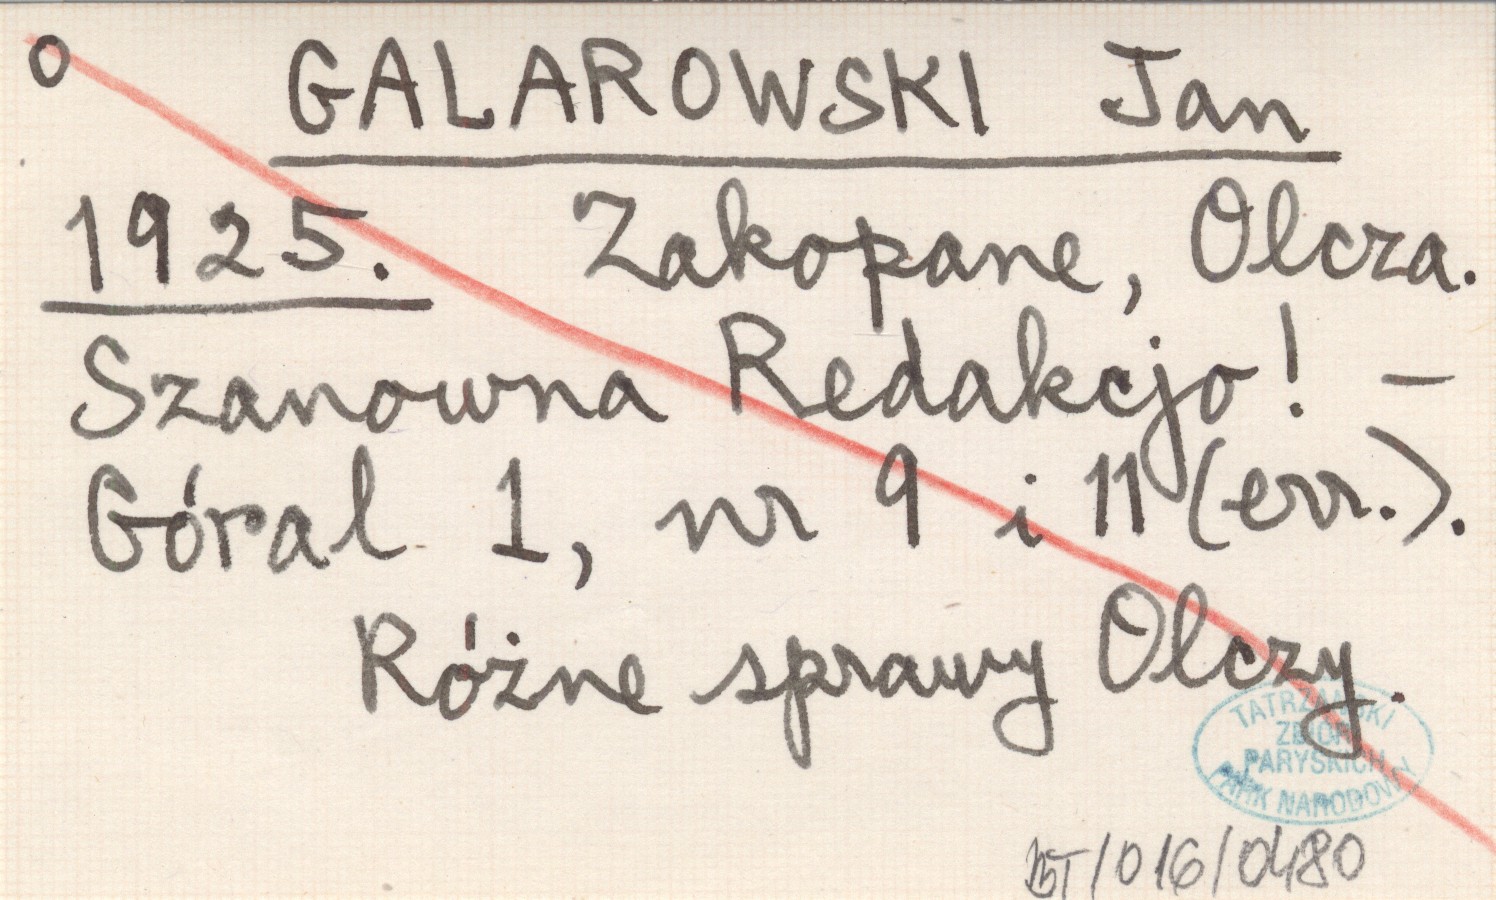 o GALAROWSKI Jan
1925. Zakopane, Olcza.
Szanowna Redakcjo! —
Góral 1, nr 9 i 11 (err.).
Różne sprawy Olczy.
TATRZAŃSKI
ZBIÓR
PARYSKICH
PARK NARODOWY
BT/016/0480